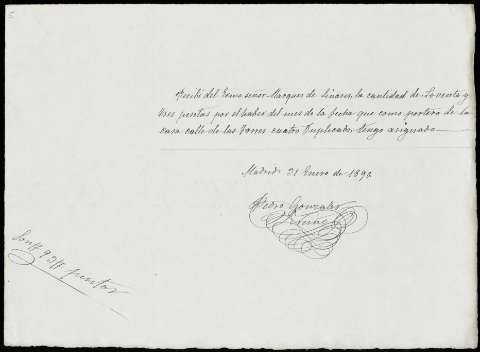 Recibí del Excmo señor Marques de Linares, la cantidad de Noventa y
tres pesetas por el haber del mes de la fecha que como portero de la
casa calle de las Torres cuatro duplicado, tengo asignado
Madrid 31 Enero de 189
Pedro Gonzalez
Son # 93 # pesetas